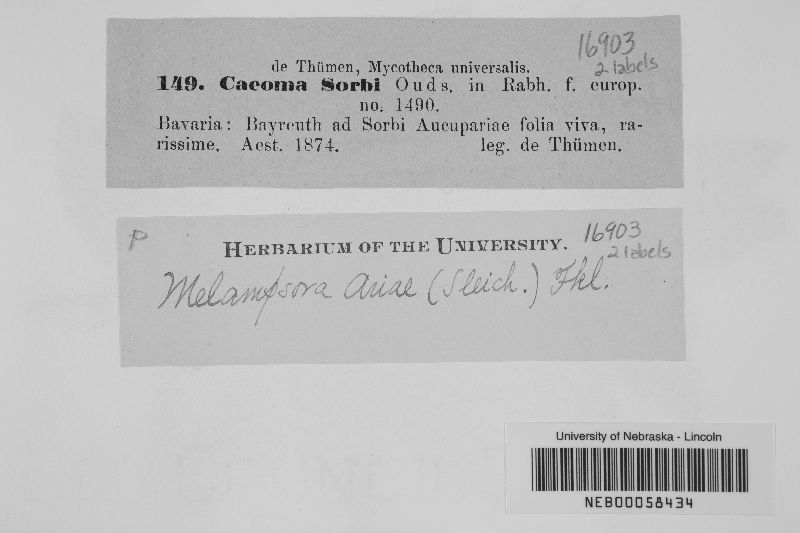 16903
2 labels
de Thümen, Mycotheca universalis.
149. Caeoma Sorbi Ouds. in Rabh. f. europ.
no. 1490.
Bavaria: Bayreuth ad Sorbi Aucupariae folia viva, ra-
rissime. Aest. 1874. leg. de Thümen.
P
HERBARIUM OF THE UNIVERSITY.
16903
2 labels
Melampsora Ariae (Sleich.) Fkl.
University of Nebraska - Lincoln
NEB00058434